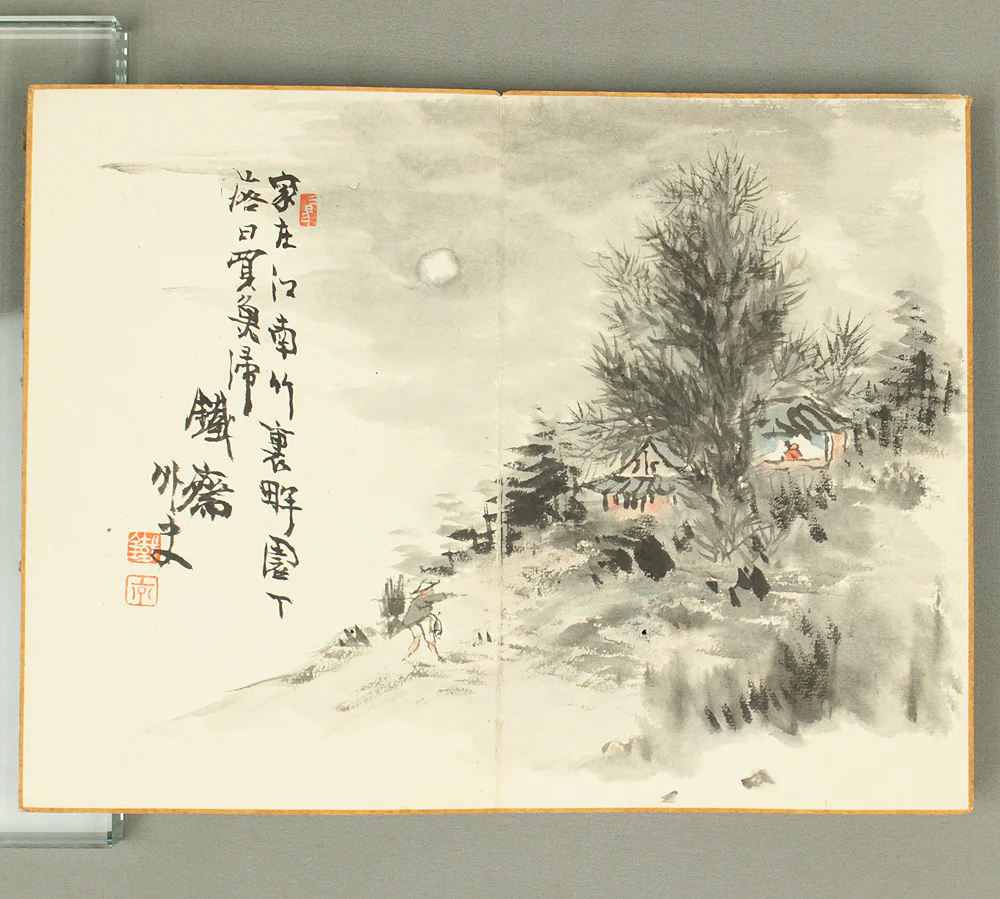 家在江南竹裏園丁
落日買魚帰
鐵齋
外史